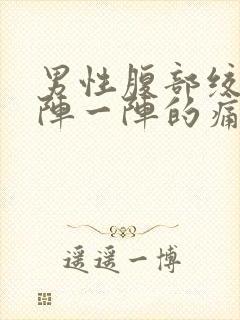 男性腹部绞
陣一陣的痛
遥遥一博